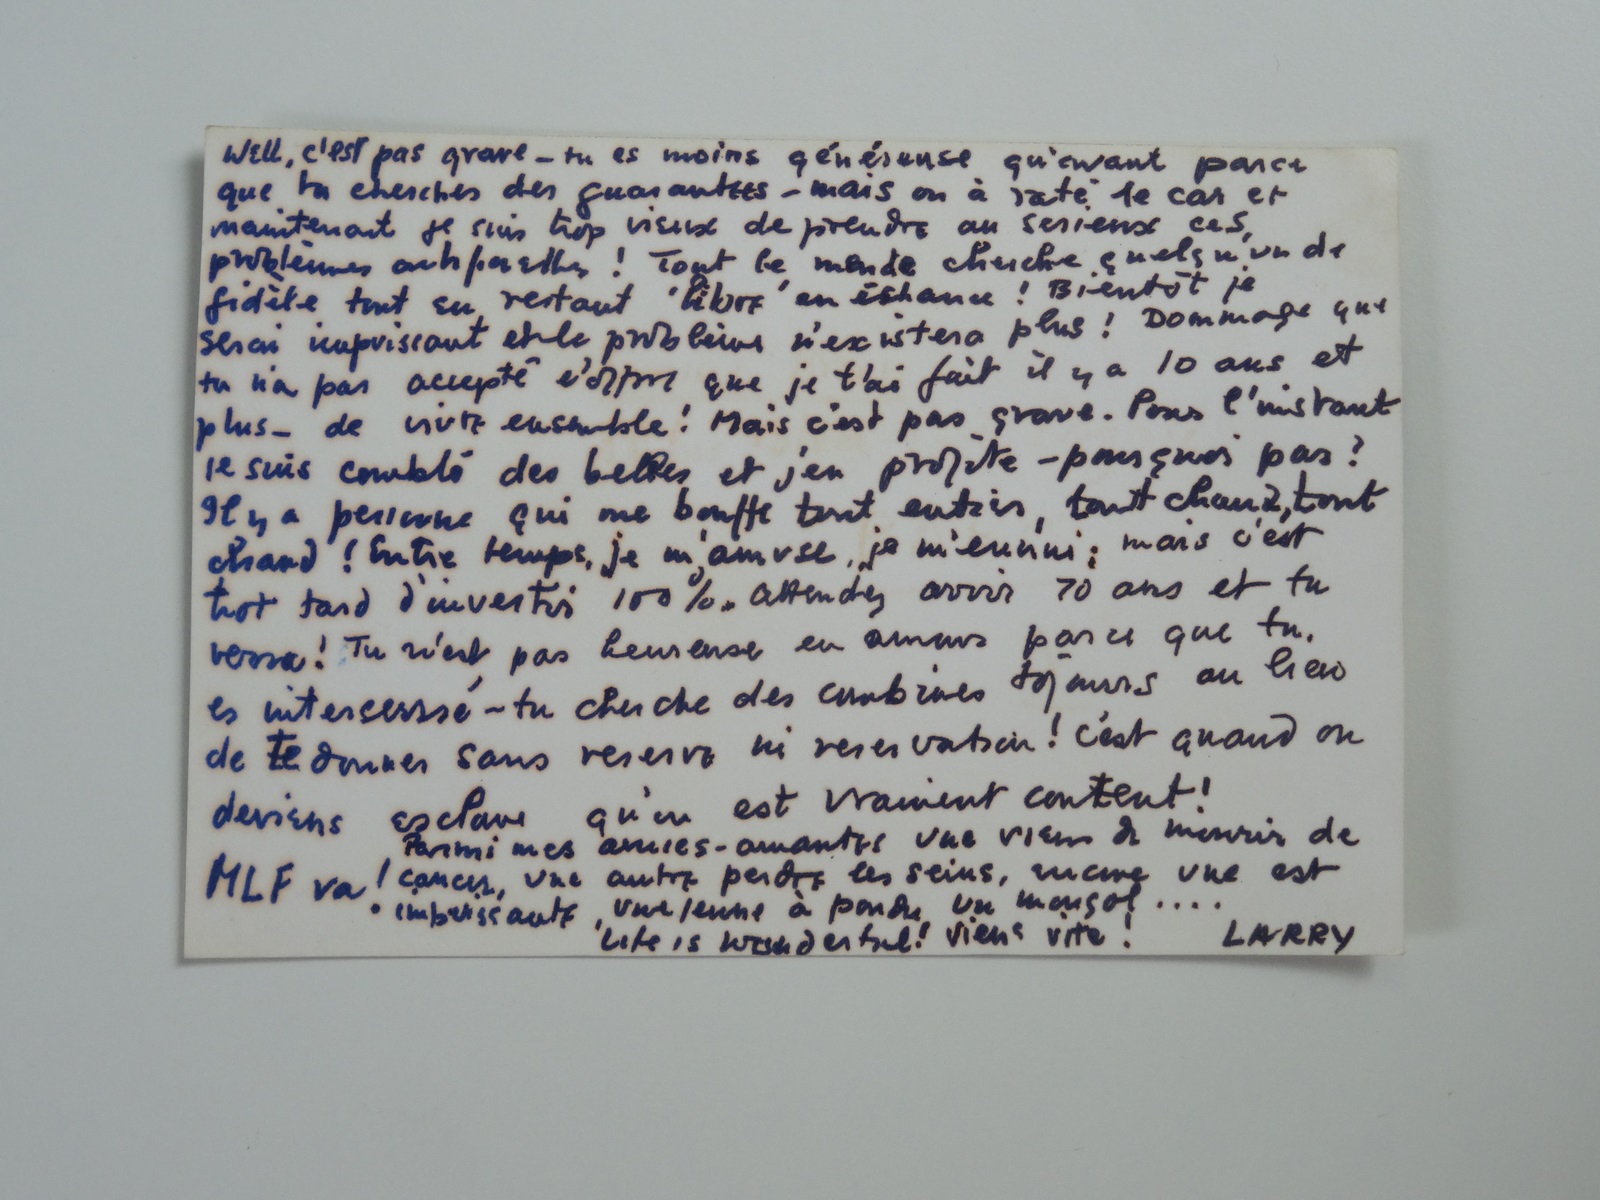 Well, c'est pas grave – tu es moins généreuse qu'avant parce
que tu cherches des guarantees – mais on à raté le car et
maintenant je suis trop vieux de prendre au serieux ces
problèmes ! Tout le monde cherche quelqu'un de
fidèle tout en restant 'libre' en échance ! Bientôt je
serai impuissant et le problème n'existera plus ! Dommage que
tu n'a pas accepté l'offre que je t'ai fait il y a 10 ans et
plus – de vivre ensemble ! Mais c'est pas grave. Pour l'instant
je suis comblé des belles et j'en profite – pourquoi pas ?
Il y a personne qui me bouffe tout entier, tout chaud, tout
chaud ! Entre temps, je m'amuse, je m'ennui ; mais c'est
trot tard d'investir 100%. Attendez avoir 70 ans et tu
verra ! Tu n'est pas heureuse en amours parce que tu
es interessé – tu cherche des combines tojours au lieu
de te donner sans reserve ni reservation ! C'est quand on
deviens esclave qu'on est vraiment content !
Parmi mes amies-amantes une viens de mourir de
MLF va ! cancer, une autre perdre les seins, encore une est
impuissante, une jeune à pondu un mongol ....
Life is wonderful ! Viens vite ! LARRY